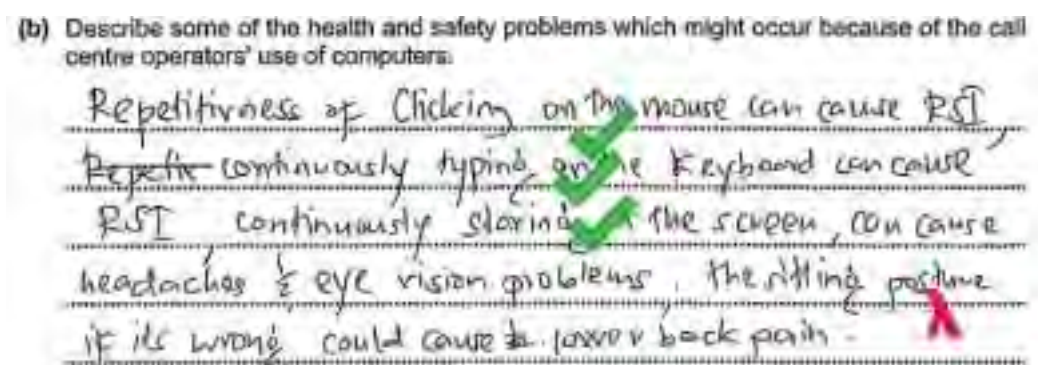 (b) Describe some of the health and safety problems which might occur because of the call
centre operators' use of computers.
Repetitivness of Clicking on the mouse can cause RSI,
Repetit continuously typing on the Keyboard can cause
RSI, continuously staring the screen, can cause
headaches & eye vision problems, the sitting posture
if its wrong, could cause lower back pain.